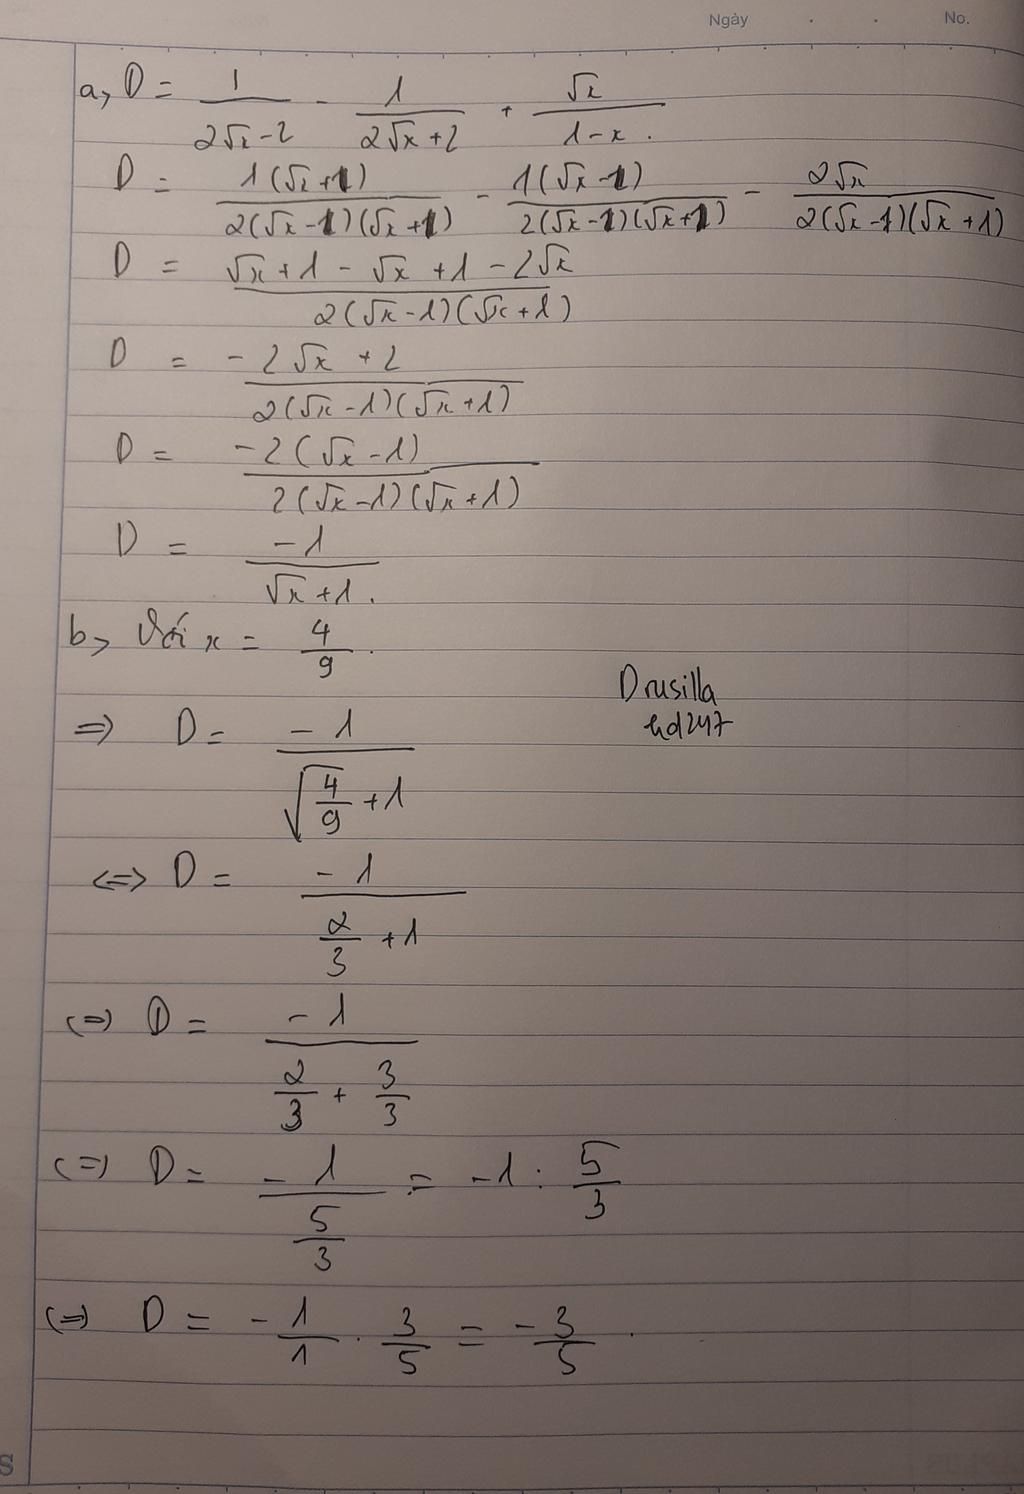 Ngày . . No.
a, D = 1/(2√x-2) - 1/(2√x+2) + √x/(1-x).
D = 1(√x+1)/(2(√x-1)(√x+1)) - 1(√x-1)/(2(√x-1)(√x+1)) - 2√x/(2(√x-1)(√x+1))
D = (√x+1-√x+1-2√x)/(2(√x-1)(√x+1))
D = (-2√x+2)/(2(√x-1)(√x+1))
D = -2(√x-1)/(2(√x-1)(√x+1))
D = -1/(√x+1).
b, Với x = 4/9.
Drusilla
hd247
=> D = -1/(√(4/9)+1)
<=> D = -1/(2/3+1)
<=> D = -1/(2/3+3/3)
<=> D = -1/(5/3) = -1 : 5/3
<=> D = -1/1 . 3/5 = -3/5.